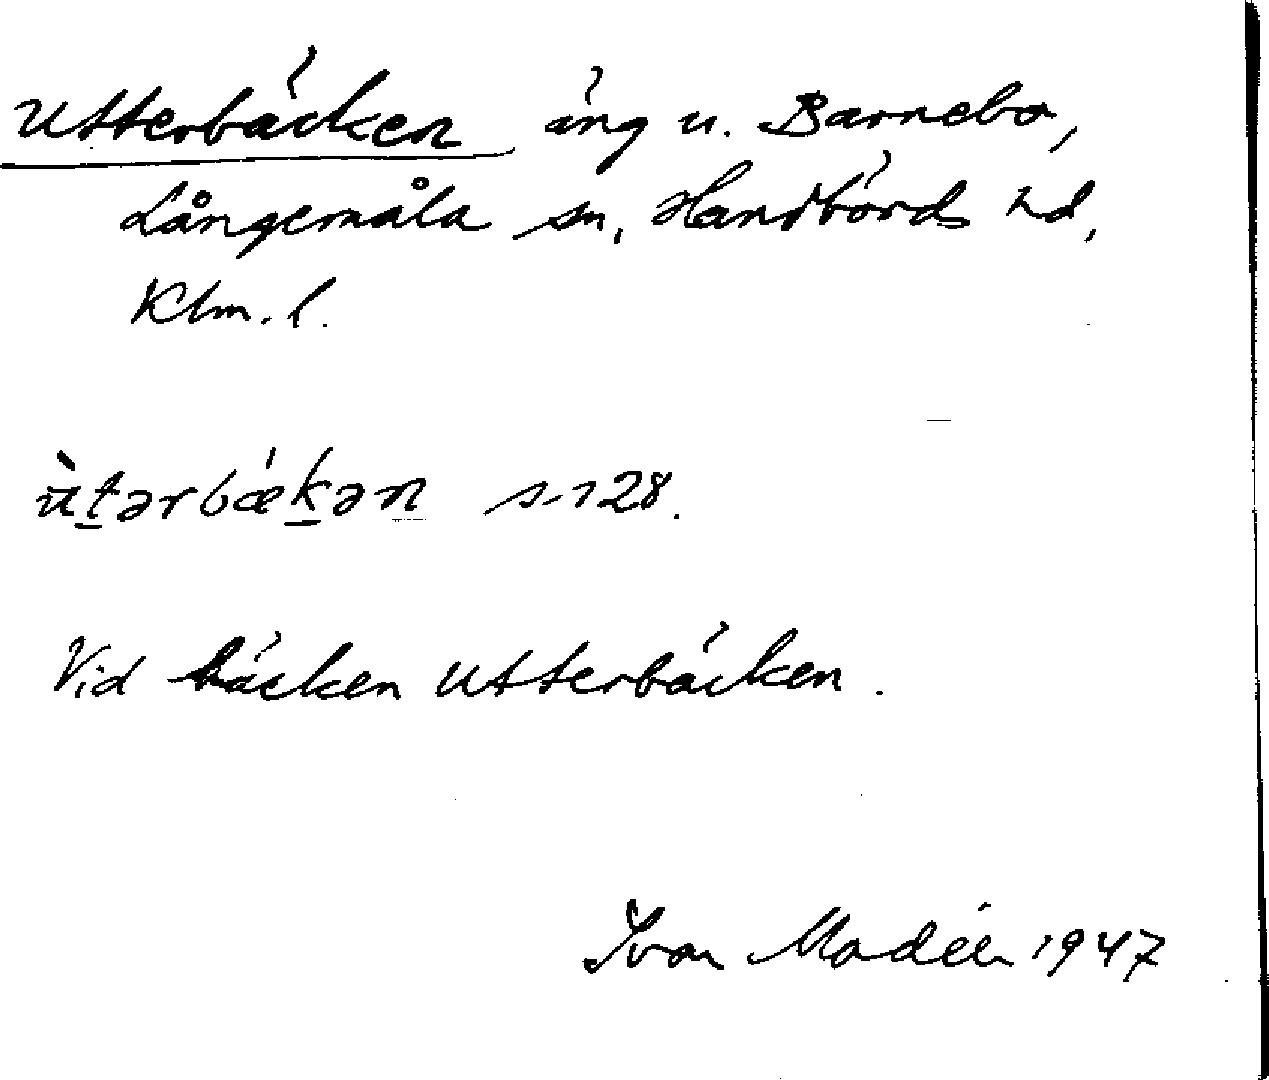 Utterbäcken äng u. Barnebo,
Långemåla sn, Handbörds hd,
Klm. l.
ùtərbækən s-r 28.
Vid bäcken Utterbäcken.
Ivar Modéer 1947